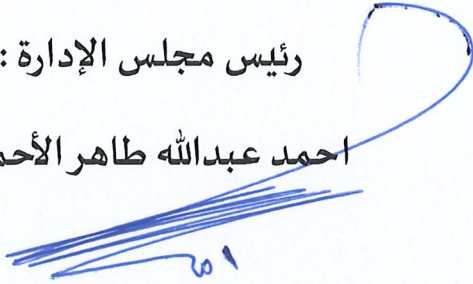 رئيس مجلس الإدارة :
احمد عبدالله طاهر